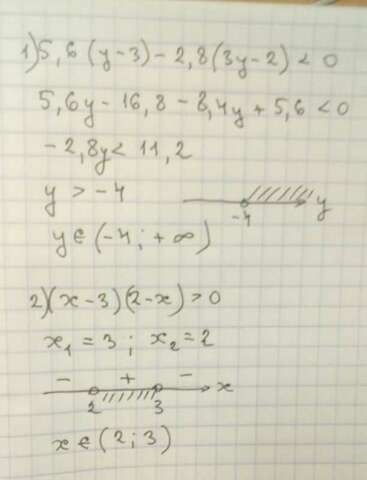 1) 5,6 (y-3) - 2,8 (3y-2) < 0
5,6y - 16,8 - 8,4y + 5,6 < 0
-2,8y < 11,2
y > -4
-4 y
y ∈ (-4; +∞)
2) (x-3)(2-x) > 0
x₁ = 3; x₂ = 2
- + -
2 3 x
x ∈ (2; 3)